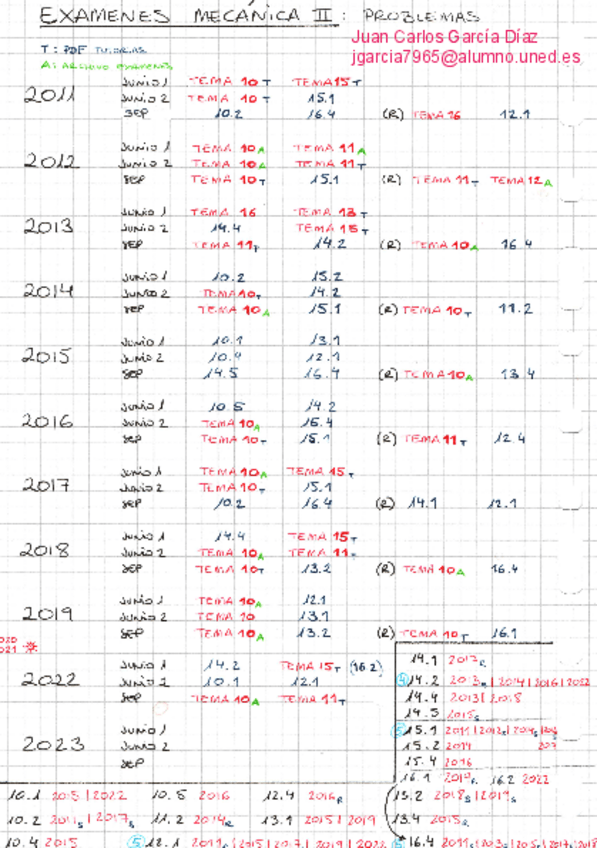 EXAMENES MECÁNICA II: PROBLEMAS
Juan Carlos García Díaz
jgarcia7965@alumno.uned.es
T: PDF TUTORIAS
A: ARCHIVO EXAMENES
2011
JUNIO 1 TEMA 10 T TEMA 15 T
JUNIO 2 TEMA 10 T 15.1
SEP 10.2 16.4 (R) TEMA 16 12.1
2012
JUNIO 1 TEMA 10 A TEMA 11 A
JUNIO 2 TEMA 10 A TEMA 11 T
SEP TEMA 10 T 15.1 (R) TEMA 11 T TEMA 12 A
2013
JUNIO 1 TEMA 16 TEMA 13 T
JUNIO 2 14.4 TEMA 15 T
SEP TEMA 11 T 14.2 (R) TEMA 10 A 16.4
2014
JUNIO 1 10.2 15.2
JUNIO 2 TEMA 10 T 14.2
SEP TEMA 10 A 15.1 (R) TEMA 10 T 11.2
2015
JUNIO 1 10.1 13.1
JUNIO 2 10.4 12.1
SEP 14.5 16.4 (R) TEMA 10 A 13.4
2016
JUNIO 1 10.5 14.2
JUNIO 2 TEMA 10 A 15.4
SEP TEMA 10 T 15.1 (R) TEMA 11 T 12.4
2017
JUNIO 1 TEMA 10 A TEMA 15 T
JUNIO 2 TEMA 10 T 15.1
SEP 10.2 16.4 (R) 14.1 12.1
2018
JUNIO 1 14.4 TEMA 15 T
JUNIO 2 TEMA 10 A TEMA 11
SEP TEMA 10 T 13.2 (R) TEMA 10 A 16.4
2019
JUNIO 1 TEMA 10 A 12.1
JUNIO 2 TEMA 10 13.1
SEP TEMA 10 A 13.2 (R) TEMA 10 T 16.1
2022
JUNIO 1 14.2 TEMA 15 T (16.2)
JUNIO 2 10.1 12.1
SEP TEMA 10 A TEMA 11 T
2023
JUNIO 1
JUNIO 2
SEP
14.1 2017 R
14.2 2013 | 2014 | 2016 | 2022
14.4 2013 | 2018
14.5 2015 S
15.1 2011 | 2012
15.2 2014
15.4 2016
16.1 2019 R 16.2 2022
10.1 2015 | 2022 10.5 2016 12.4 2016 R 13.2 2018 S | 2019 S
10.2 2011 S | 2017 11.2 2014 R 13.1 2015 | 2019 13.4 2015 R
10.4 2015 12.1 2011 16.4 2011